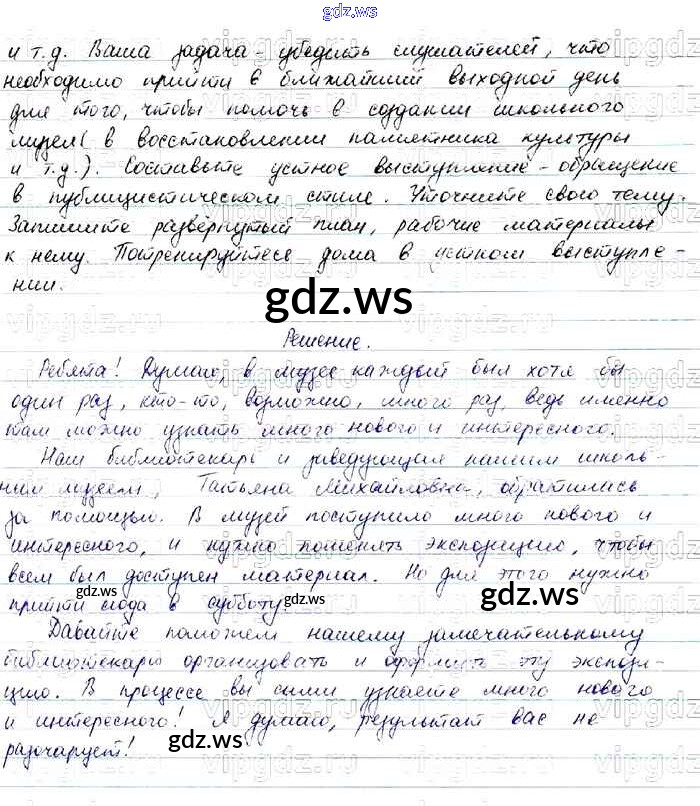 gdz.ws
и т.д. Ваша задача - убедить слушателей, что
необходимо прийти в ближайший выходной день
для того, чтобы помочь в создании школьного
музея (в восстановлении памятника культуры
и т.д.). Составьте устное выступление - обращение
в публицистическом стиле. Уточните свою тему.
Запишите развёрнутый план, рабочие материалы
к нему. Потренируйтесь дома в устном выступле-
нии.
gdz.ws
Решение.
Ребята! Думаю, в музее каждый был хотя бы
один раз, кто-то, возможно, много раз, ведь именно
там можно узнать много нового и интересного.
Наш библиотекарь и заведующая нашим школь-
ным музеем, Татьяна Михайловна, обратились
за помощью. В музей поступило много нового и
интересного, и нужно поменять экспозицию, чтобы
всем был доступен материал. Но для этого нужно
прийти сюда в субботу.
gdz.ws
gdz.ws
Давайте поможем нашему замечательному
библиотекарю организовать и оформить эту экспози-
цию. В процессе вы сами узнаете много нового
и интересного! Я думаю, результат вас не
разочарует!
gdz.ws
gdz.ws